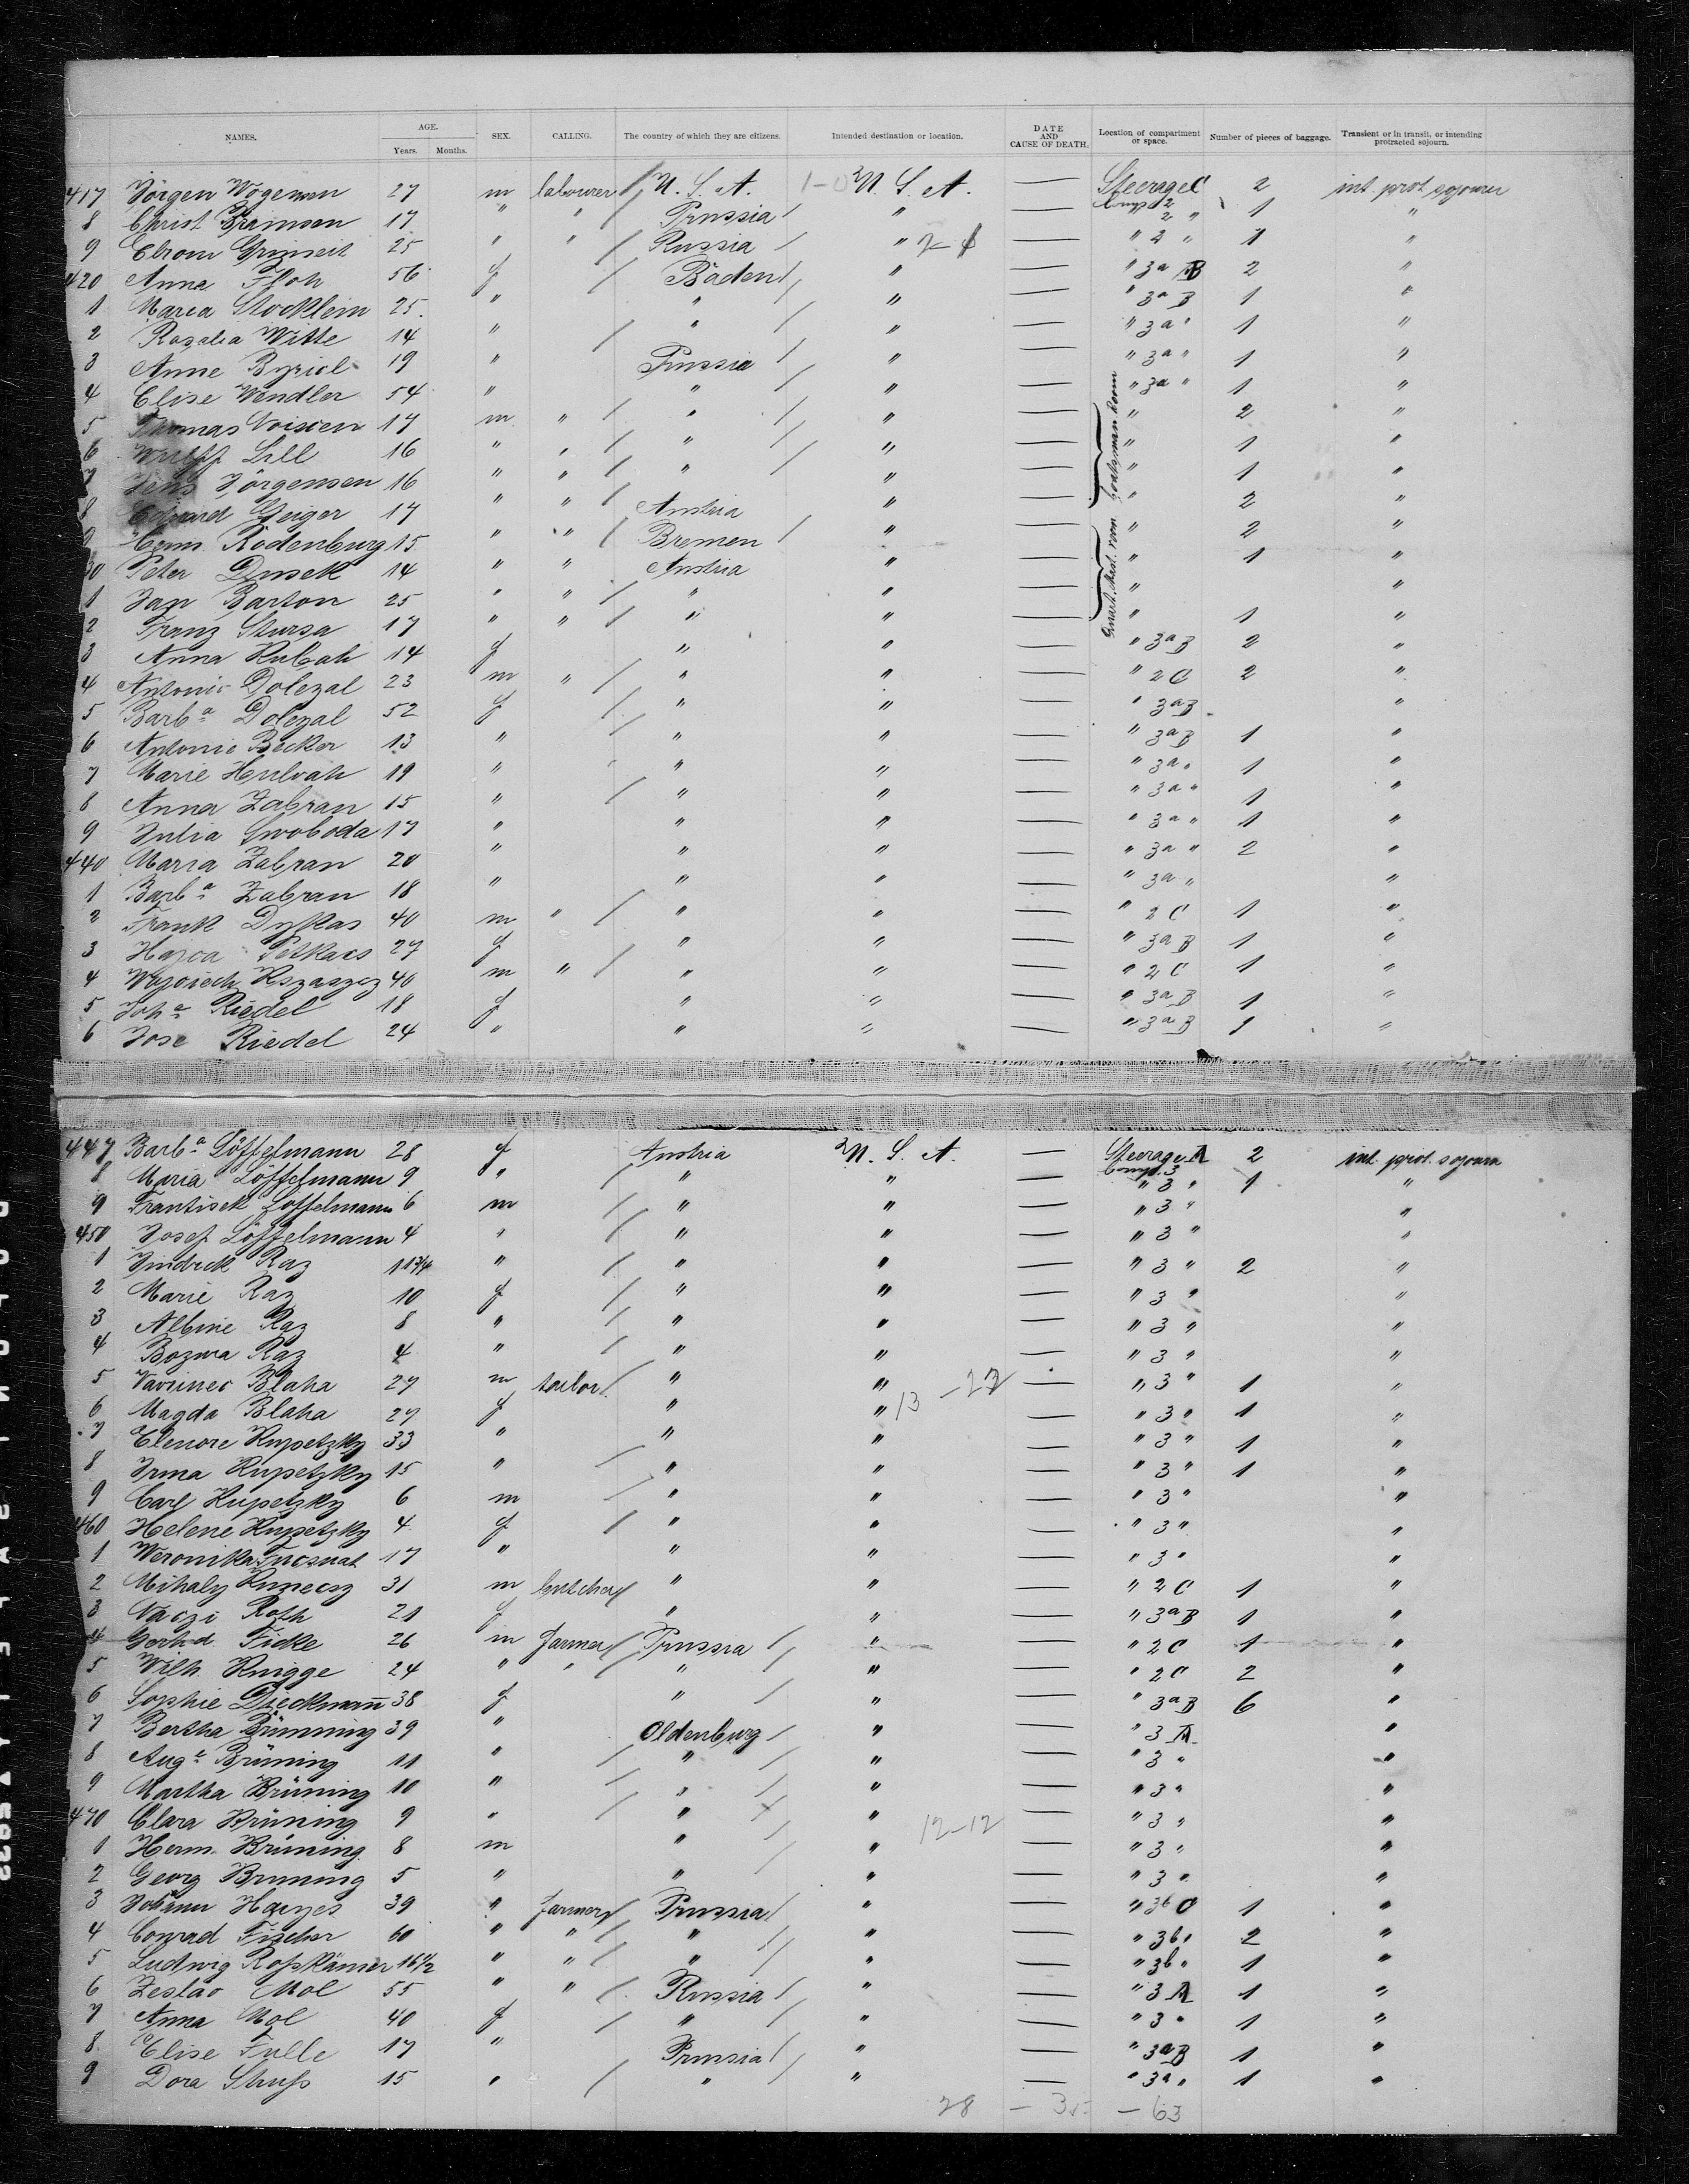 NAMES. AGE. SEX. CALLING. The country of which they are citizens. Intended destination or location. DATE AND CAUSE OF DEATH. Location of compartment or space. Number of pieces of baggage. Transient or in transit, or intending protracted sojourn.
Years. Months.
417 Jörgen Wögensen 27 m labourer U. S. A. U. S. A. — Steerage C 2 int. prot. sojourn
Comp. 2
8 Christ 17 " " Prussia " — 2 " 1 "
9 25 " " Russia " — " 2 " 1 "
420 Anna Floh 56 f Baden " — " 3a B 2 "
1 Maria Stocklein 25 " " " — " 3a B 1 "
2 Rosalia Witte 14 " " " — " 3a " 1 "
3 Anne 19 " Prussia " — " 3a " 1 "
4 Elise Wendler 54 " " " — " 3a " 1 "
5 Thomas Voisien 17 m " " " — " 2 "
6 Lill 16 " " " " — " 1 "
7 Jens Jörgensen 16 " " " " — " 1 "
8 Eduard Geiger 17 " " Austria " — " 2 "
9 Herm. Rodenburg 15 " " Bremen " — " 2 "
30 Peter Dusek 14 " " Austria " — " 1 "
1 Jan Barton 25 " " " " — " "
2 Franz Stursa 17 " " " " — " 1 "
3 Anna Kubah 14 f " " — " 3a B 2 "
4 Antonie Dolezal 23 m " " " — " 2 C 2 "
5 Barba Dolezal 52 f " " — " 3a B "
6 Antonie Becker 13 " " " — " 3a B 1 "
7 Marie 19 " " " — " 3a " 1 "
8 Anna Zabran 15 " " " — " 3a " 1 "
9 Julia Swoboda 17 " " " — " 3a " 1 "
440 Maria Zabran 20 " " " — " 3a " 2 "
1 Barba Zabran 18 " " " — " 3a " "
2 Frank Dykas 40 m " " " — " 2 C 1 "
3 27 f " " — " 3a B 1 "
4 40 m " " " — " 2 C 1 "
5 Joha Riedel 18 f " " — " 3a B 1 "
6 Jose Riedel 24 " " " — " 3a B 1 "
447 Barba Löffelmann 28 f Austria U. S. A. — Steerage A 2 int. prot. sojourn
Comp. 3
8 Maria Löffelmann 9 " " " — " 3 " 1 "
9 Frantisek Löffelmann 6 m " " — " 3 " "
450 Josef Löffelmann 4 " " " — " 3 " "
1 Jindrek Raz 11 3/4 " " " — " 3 " 2 "
2 Marie Raz 10 f " " — " 3 " "
3 Albine Raz 8 " " " — " 3 " "
4 Bozwa Raz 4 " " " — " 3 " "
5 Vavrinec Blaha 27 m tailor " " — " 3 " 1 "
6 Magda Blaha 27 f " " 13 — " 3 " 1 "
7 Elenore Kupetzky 33 " " " — " 3 " 1 "
8 Irma Kupetzky 15 " " " — " 3 " 1 "
9 Carl Kupetzky 6 m " " — " 3 " "
460 Helene Kupetzky 4 f " " — " 3 " "
1 Weronika 17 " " " — " 3 " "
2 Mihaly 31 m butcher " " — " 2 C 1 "
3 Roth 21 f " " — " 3a B 1 "
4 Gerhd. Ficke 26 m farmer Prussia " — " 2 C 1 "
5 Wilh. Knigge 24 " " " " — " 2 C 2 "
6 Sophie Dieckmann 38 f " " — " 3a B 6 "
7 Bertha Brünning 39 " Oldenburg " — " 3 A "
8 Auge Brüning 11 " " " — " 3 " "
9 Martha Brüning 10 " " " — " 3 " "
470 Clara Brüning 9 " " " 12-12 — " 3 " "
1 Herm. Brüning 8 m " " — " 3 " "
2 Georg Brüning 5 " " " — " 3 " "
3 Johann Harjes 39 " farmer Prussia " — " 3b C 1 "
4 Conrad Fischer 60 " " " " — " 3b " 2 "
5 Ludwig Roßkämer 16 1/2 " " " " — " 3b " 1 "
6 Zeslav Mol 55 " " Russia " — " 3 A 1 "
7 Anna Mol 40 f " " — " 3 " 1 "
8 Elise Fulle 17 " Prussia " — " 3a B 1 "
9 Dora Struß 15 " " " — " 3a " 1 "
28 — 35 — 63